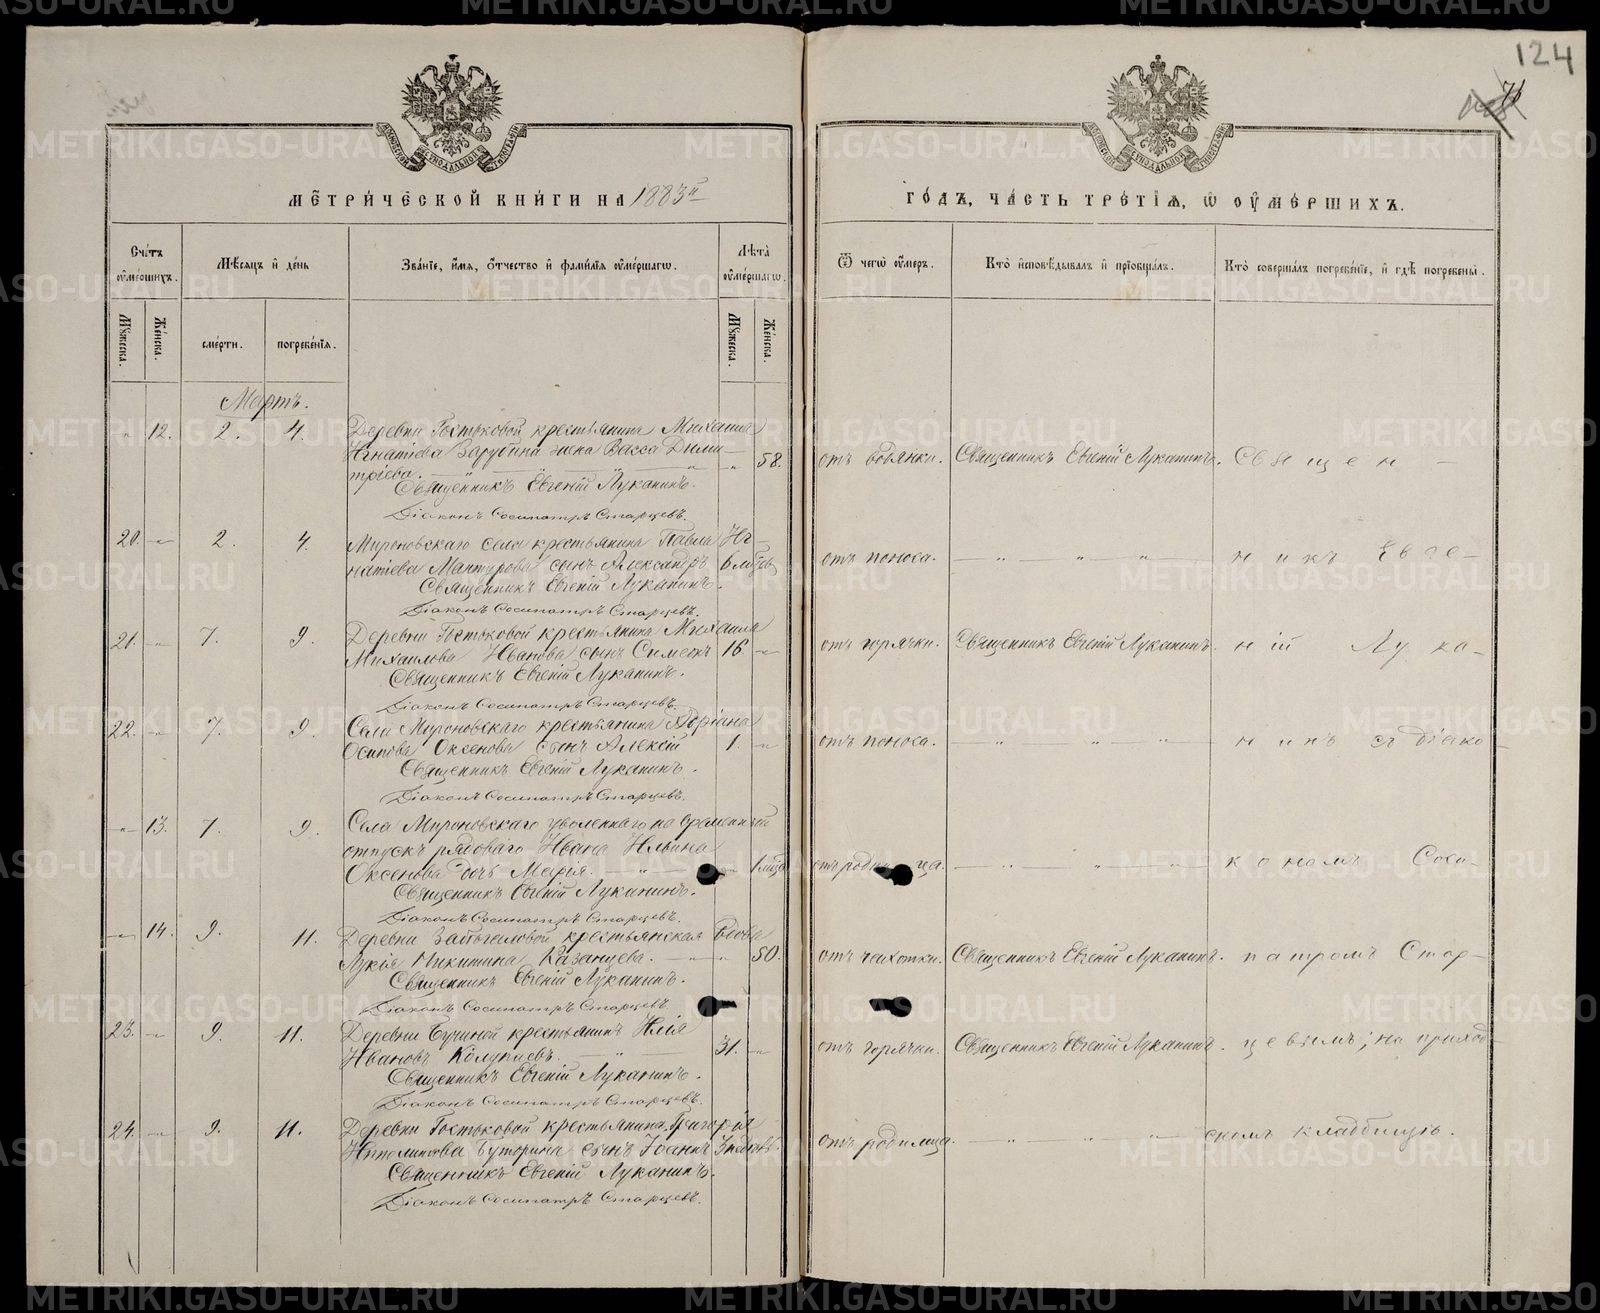 124
МЕТРИЧЕСКОЙ КНИГИ НА 1883й
ГОДЪ, ЧАСТЬ ТРЕТІЯ, Ѡ ОУМЕРШИХЪ.
Счетъ оумершихъ.
Мѣсяцъ и день
Званіе, имя, отчество и фамилія оумершагѡ.
Лѣта оумершагѡ.
Ѿ чегѡ оумеръ.
Кто исповѣдывалъ и пріобщалъ.
Кто совершалъ погребеніе, и гдѣ погребены.
Мужеска.
Женска.
смерти.
погребенія.
Мужеска.
Женска.
Мартъ.
" 12. 2. 4. Деревни Гостьковой крестьянина Михаила
Игнатіева Зарубина жена Васса Дими-
тріева. " 58. отъ водянки. Священникъ Евгеній Луканинъ. Священ-
Священникъ Евгеній Луканинъ.
Діаконъ Сосипатръ Старцевъ.
20. " 2. 4. Мироновскаго села крестьянина Павла Иг-
натіева Мантурова сынъ Александръ 6 мѣс. отъ поноса. " " никъ Евге-
Священникъ Евгеній Луканинъ.
Діаконъ Сосипатръ Старцевъ.
21. " 7. 9. Деревни Гостьковой крестьянина Михаила
Михаилова Иванова сынъ Симеонъ 16. " отъ горячки. Священникъ Евгеній Луканинъ. ній Лука-
Священникъ Евгеній Луканинъ.
Діаконъ Сосипатръ Старцевъ.
22. " 7. 9. Села Мироновскаго крестьянина Адріана
Осипова Оксенова сынъ Алексій 1. " отъ поноса. " " нинъ съ діако-
Священникъ Евгеній Луканинъ.
Діаконъ Сосипатръ Старцевъ.
" 13. 7. 9. Села Мироновскаго уволеннаго во временный
отпускъ рядоваго Ивана Ильина
Оксенова дочь Марія. " 1 мѣс. отъ родимца. " " кономъ Соси-
Священникъ Евгеній Луканинъ.
Діаконъ Сосипатръ Старцевъ.
" 14. 9. 11. Деревни крестьянская вдова
Лукія Никитина Казанцева. " 50. отъ чахотки. Священникъ Евгеній Луканинъ. патромъ Стар-
Священникъ Евгеній Луканинъ.
Діаконъ Сосипатръ Старцевъ.
23. " 9. 11. Деревни крестьянинъ Илія
Ивановъ 31. " отъ горячки. Священникъ Евгеній Луканинъ. цевымъ; на приход-
Священникъ Евгеній Луканинъ.
Діаконъ Сосипатръ Старцевъ.
24. " 9. 11. Деревни Гостьковой крестьянина Григорія
Ипполитова Буторина сынъ Іоаннъ отъ родимца. " " скомъ кладбищѣ.
Священникъ Евгеній Луканинъ.
Діаконъ Сосипатръ Старцевъ.
METRIKI.GASO-URAL.RU